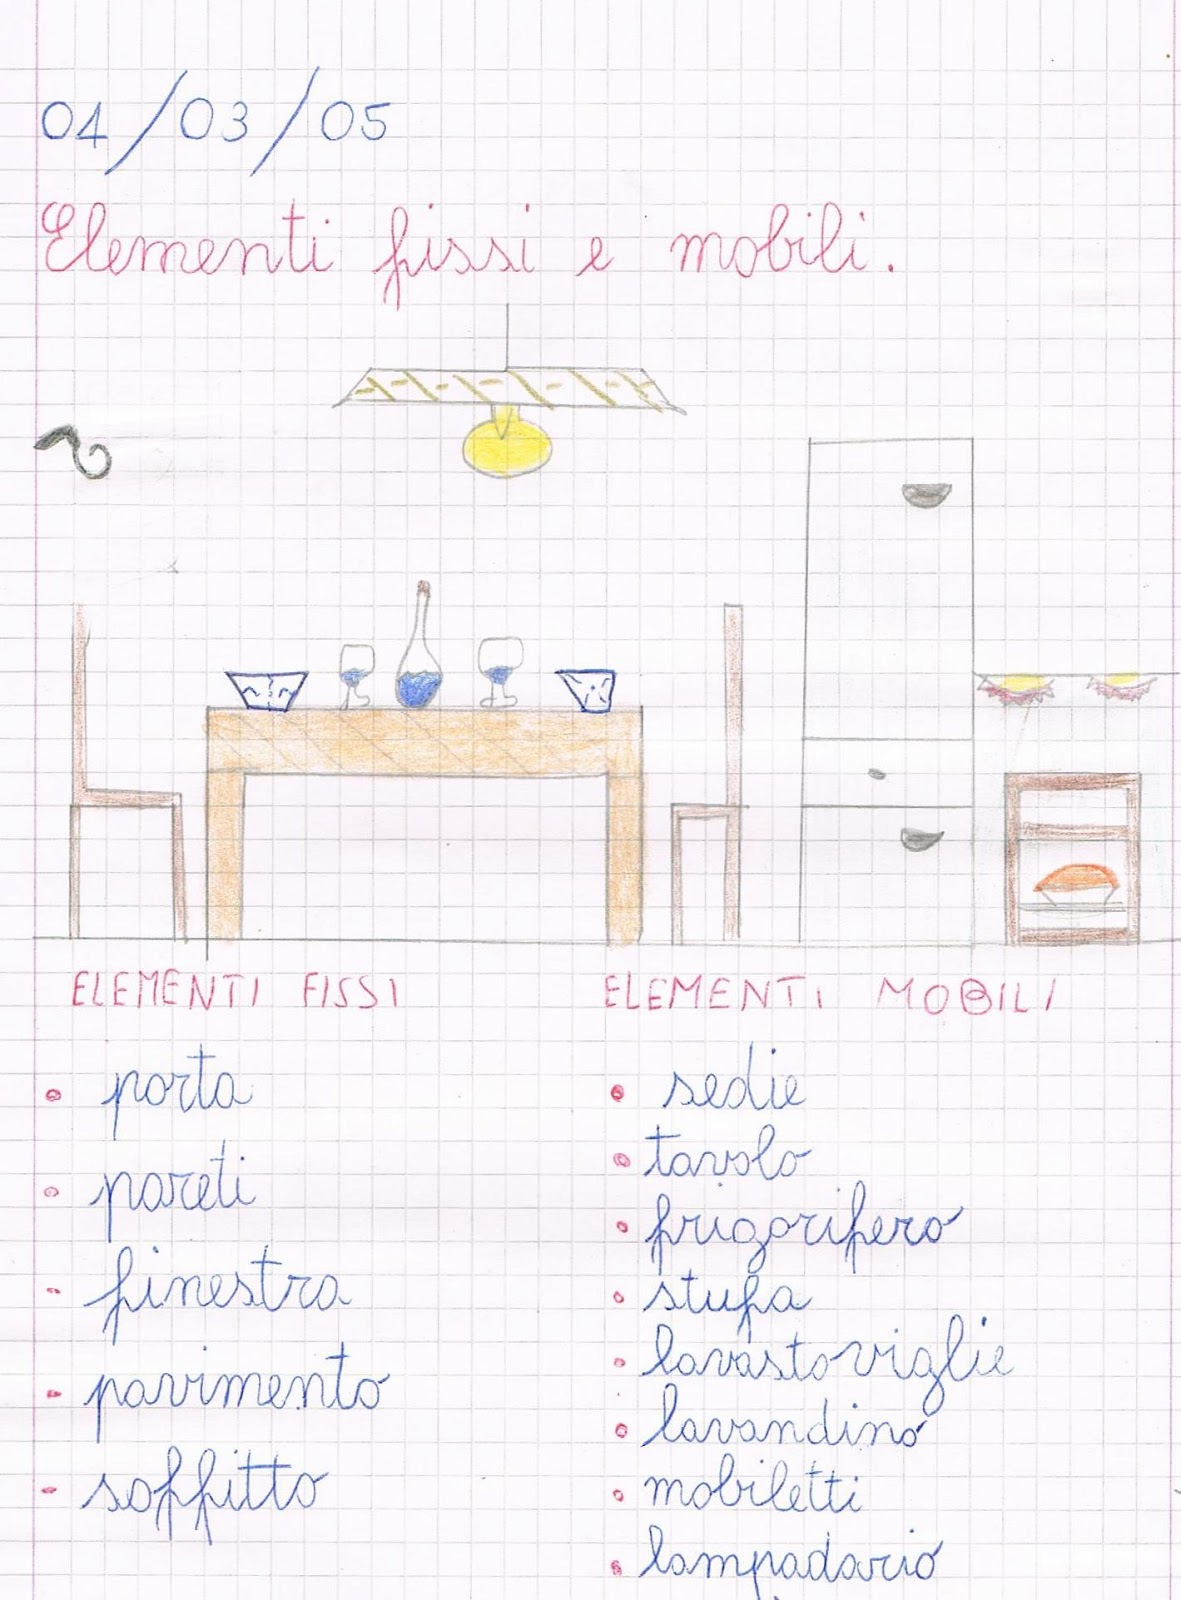 04/03/05
Elementi fissi e mobili.
ELEMENTI FISSI
• porta
• pareti
• finestra
• pavimento
• soffitto
ELEMENTI MOBILI
• sedie
• tavolo
• frigorifero
• stufa
• lavastoviglie
• lavandino
• mobiletti
• lampadario